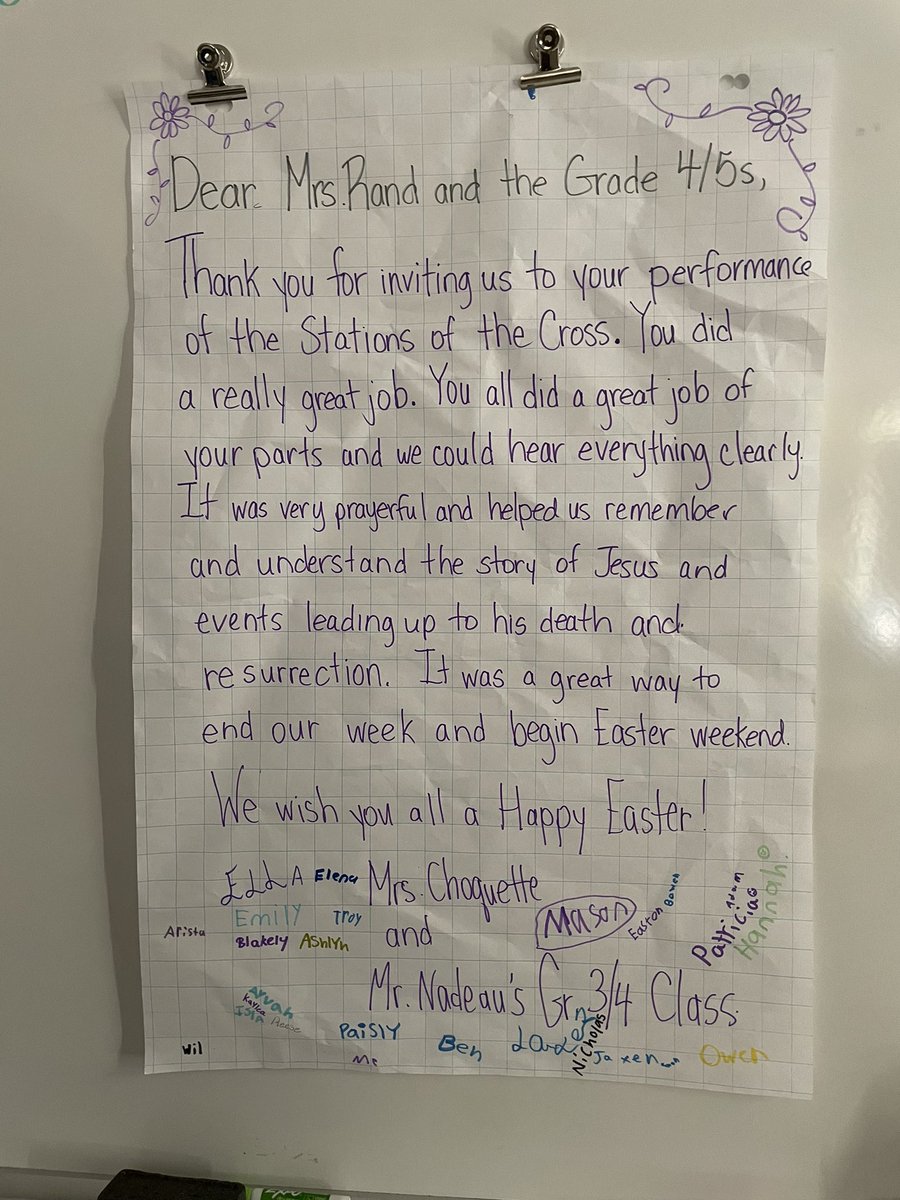 Dear Mrs. Rand and the Grade 4/5s,
Thank you for inviting us to your performance
of the Stations of the Cross. You did
a really great job. You all did a great job of
your parts and we could hear everything clearly.
It was very prayerful and helped us remember
and understand the story of Jesus and
events leading up to his death and
resurrection. It was a great way to
end our week and begin Easter weekend.
We wish you all a Happy Easter!
Ella Elena Mrs. Choquette
Emily Troy
Arista Blakely Ashlyn and Mason Easton Bowen
Patricias Hannah
Mr. Nadeau's Gr 3/4 Class
Ayvah
Reese
Paisly
Wil Me Ben Nicholas Jaxen Owen